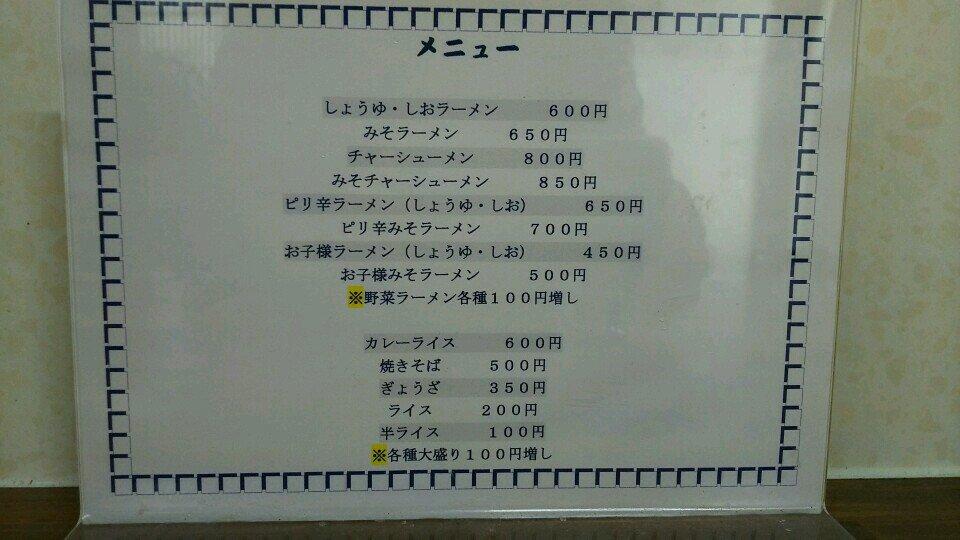 メニュー
しょうゆ・しおラーメン　６００円
みそラーメン　６５０円
チャーシューメン　８００円
みそチャーシューメン　８５０円
ピリ辛ラーメン（しょうゆ・しお）　６５０円
ピリ辛みそラーメン　７００円
お子様ラーメン（しょうゆ・しお）　４５０円
お子様みそラーメン　５００円
※野菜ラーメン各種１００円増し
カレーライス　６００円
焼きそば　５００円
ぎょうざ　３５０円
ライス　２００円
半ライス　１００円
※各種大盛り１００円増し